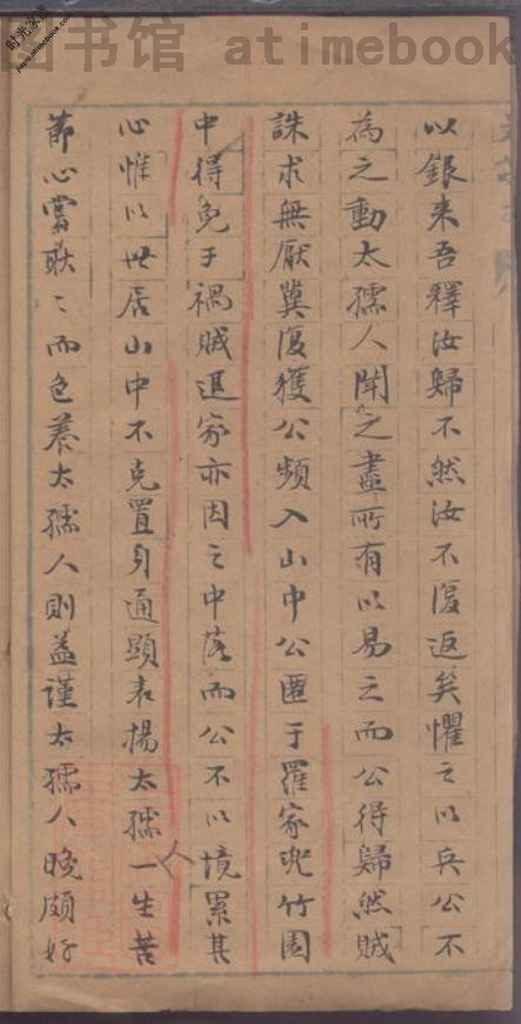 图书馆 atimebook
时光家园
以銀来吾釋汝歸不然汝不復返矣懼之以兵公不
為之動太孺人聞之盡所有以易之而公得歸然賊
誅求無厭冀復獲公頻入山中公匿于羅家兠竹園
中得免于禍賊退家亦因之中落而公不以境累其
心惟以世居山中不克置身通顯表揚太孺人一生苦
節心嘗耿〻而色養太孺人則益謹太孺人晚頗好